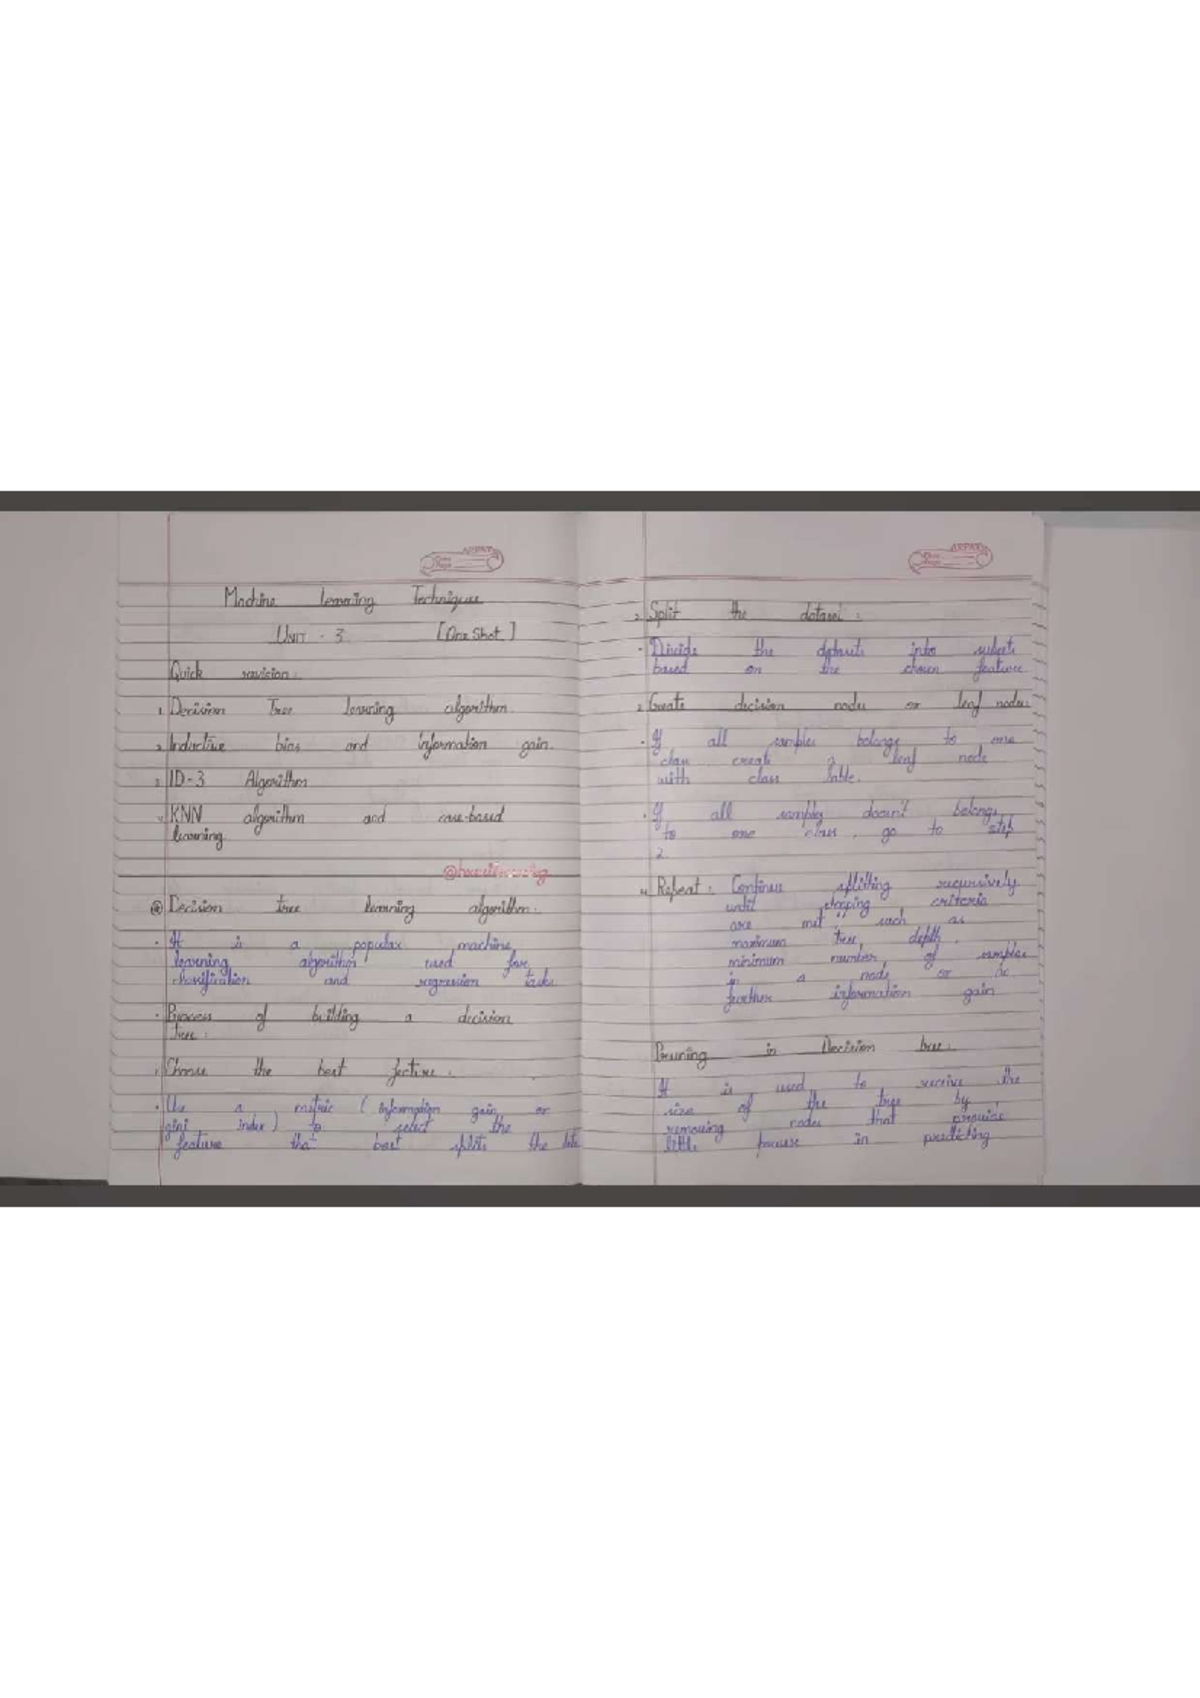 Machine Learning Techniques
UNIT - 3 [One Shot]
Quick revision:
1. Decision Tree learning algorithm.
2. Inductive bias and information gain.
3. ID-3 Algorithm
4. KNN algorithm and case-based
learning.
Decision tree learning algorithm:
• It is a popular machine
learning algorithm used for
classification and regression tasks
• Process of building a decision
tree:
1. Choose the best feature.
• Use a metric (information gain or
gini index) to select the
feature that best splits the
2. Split the dataset:
• Divide the datasets into subsets
based on the chosen feature
3. Create decision nodes or leaf nodes
• If all samples belongs to one
class create a leaf node
with class lable.
• If all samples doesn't belongs
to one class, go to step
2.
4. Repeat: Continue splitting recursively
until stopping criteria
are met such as
maximum tree depth,
minimum number of samples
in a node or no
further information gain
Pruning in Decision tree:
It is used to the
size of the tree by
removing nodes that provide
little in predicting